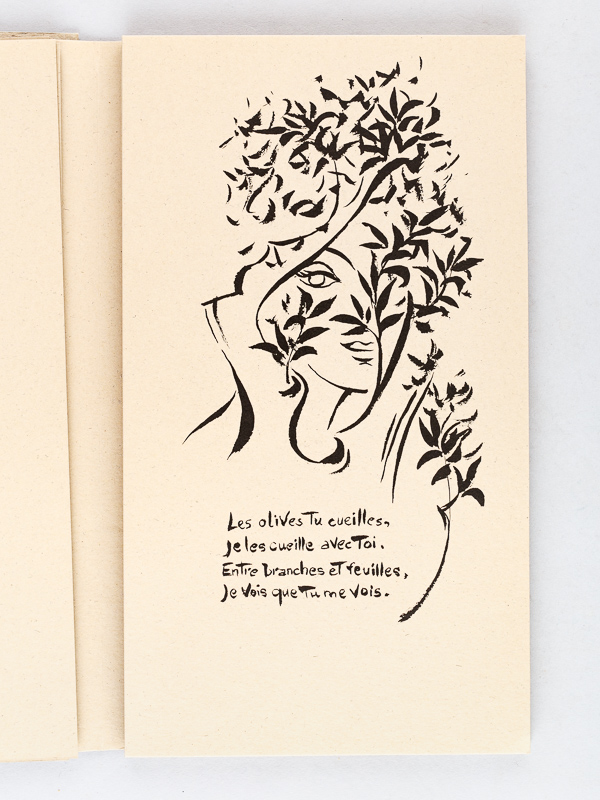 Les olives Tu cueilles,
Je les cueille avec Toi.
Entre branches et feuilles,
Je Vois que Tu me Vois.